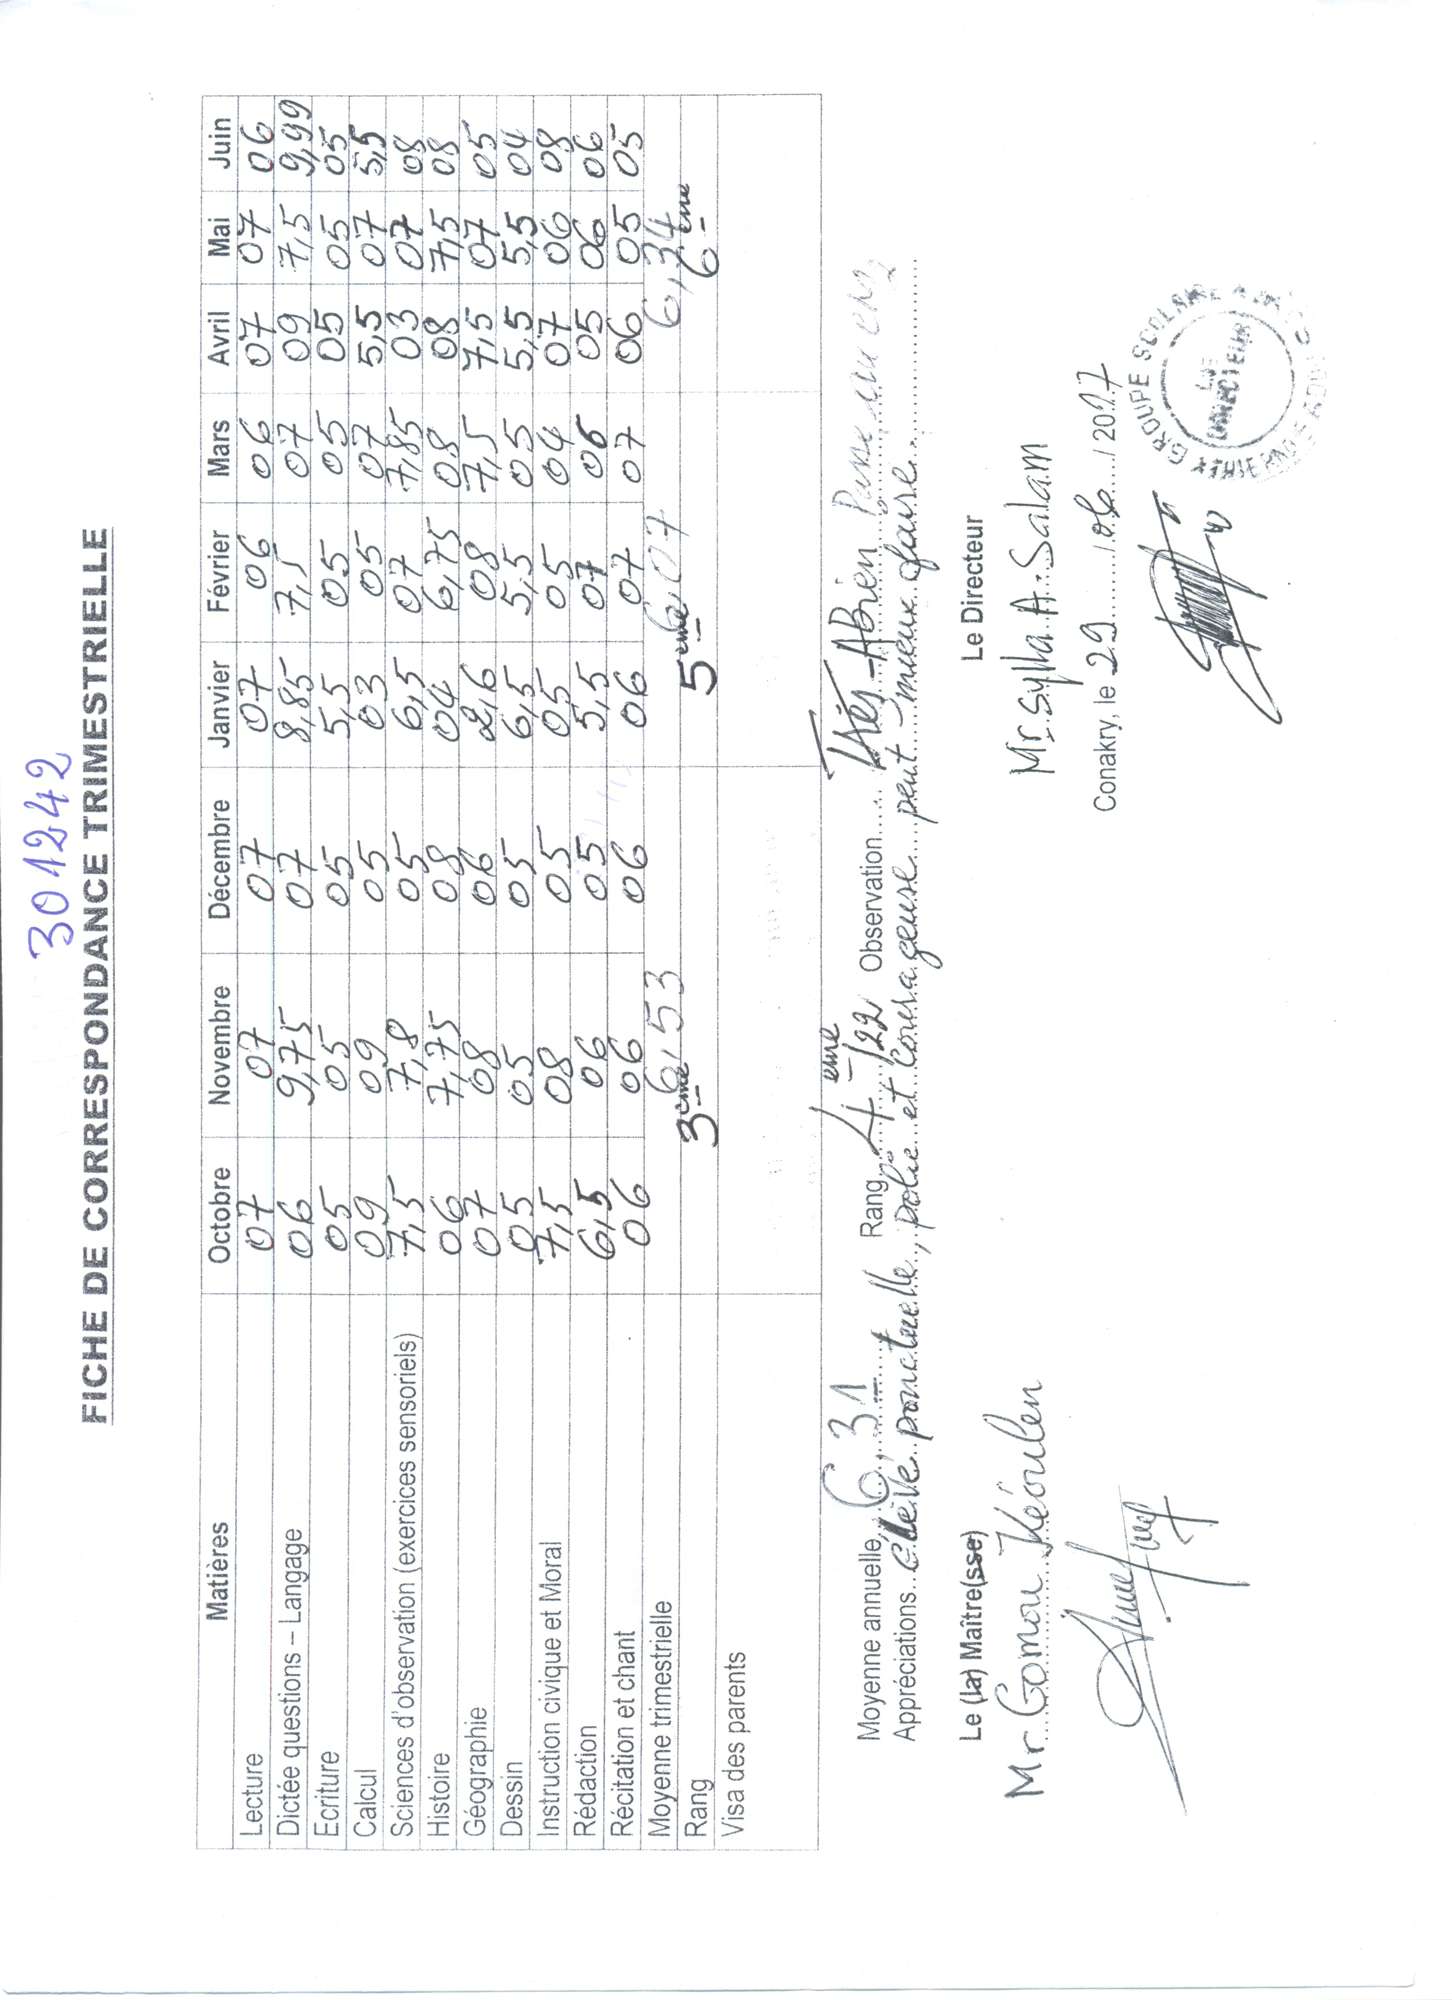 301242
FICHE DE CORRESPONDANCE TRIMESTRIELLE
Matières Octobre Novembre Décembre Janvier Février Mars Avril Mai Juin
Lecture 07 07 07 07 06 06 07 07 06
Dictée questions – Langage 06 9,75 07 8,85 7,5 07 09 7,5 9,99
Ecriture 05 05 05 5,5 05 05 05 05 05
Calcul 09 09 05 03 05 07 5,5 07 5,5
Sciences d'observation (exercices sensoriels) 7,5 7,8 05 6,5 07 7,85 03 07 08
Histoire 06 7,75 08 04 6,75 08 08 7,5 08
Géographie 07 08 06 2,6 08 7,5 7,5 07 05
Dessin 05 05 05 6,5 5,5 05 5,5 5,5 04
Instruction civique et Moral 7,5 08 05 05 05 04 07 06 08
Rédaction 6,5 06 05 5,5 07 06 05 06 06
Récitation et chant 06 06 06 06 07 07 06 05 05
Moyenne trimestrielle 6,53 6,07 6,34
Rang 3ème 5ème 6ème
Visa des parents
Moyenne annuelle 6,31 Rang 4ème/22 Observation Très-ABien Passe en
Appréciations elève ponctuelle, polie et Courageuse peut-mieux faire.
Le (la) Maître(sse) Le Directeur
Mr Gomou Kéoulen Mr Sylla A. Salam
Conakry, le 29/06/2017
GROUPE SCOLAIRE
LE DIRECTEUR